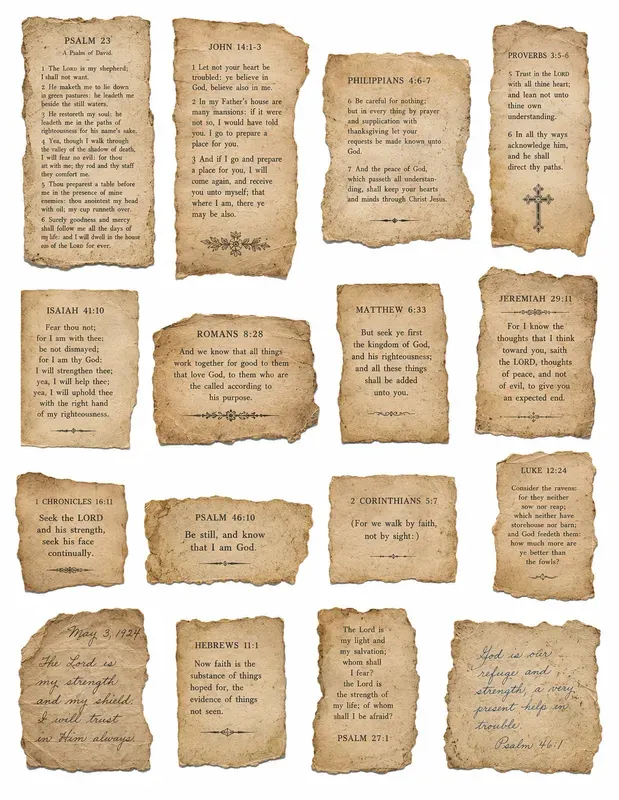 PSALM 23
A Psalm of David.
1 The LORD is my shepherd;
I shall not want.
2 He maketh me to lie down
in green pastures: he leadeth me
beside the still waters.
3 He restoreth my soul: he
leadeth me in the paths of
righteousness for his name's sake.
4 Yea, though I walk through
the valley of the shadow of death,
I will fear no evil: for thou
art with me; thy rod and thy staff
they comfort me.
5 Thou preparest a table before
me in the presence of mine
enemies: thou anointest my head
with oil; my cup runneth over.
6 Surely goodness and mercy
shall follow me all the days of
my life: and I will dwell in the house
of the LORD for ever.
JOHN 14:1-3
1 Let not your heart be
troubled: ye believe in
God, believe also in me.
2 In my Father's house are
many mansions: if it were
not so, I would have told
you. I go to prepare a
place for you.
3 And if I go and prepare
a place for you, I will
come again, and receive
you unto myself; that
where I am, there ye
may be also.
PHILIPPIANS 4:6-7
6 Be careful for nothing;
but in every thing by prayer
and supplication with
thanksgiving let your
requests be made known unto
God.
7 And the peace of God,
which passeth all understan-
ding, shall keep your hearts
and minds through Christ Jesus.
PROVERBS 3:5-6
5 Trust in the LORD
with all thine heart;
and lean not unto
thine own
understanding.
6 In all thy ways
acknowledge him,
and he shall
direct thy paths.
ISAIAH 41:10
Fear thou not;
for I am with thee:
be not dismayed;
for I am thy God:
I will strengthen thee;
yea, I will help thee;
yea, I will uphold thee
with the right hand
of my righteousness.
ROMANS 8:28
And we know that all things
work together for good to them
that love God, to them who are
the called according to
his purpose.
MATTHEW 6:33
But seek ye first
the kingdom of God,
and his righteousness;
and all these things
shall be added
unto you.
JEREMIAH 29:11
For I know the
thoughts that I think
toward you, saith
the LORD, thoughts
of peace, and not
of evil, to give you
an expected end.
1 CHRONICLES 16:11
Seek the LORD
and his strength,
seek his face
continually.
PSALM 46:10
Be still, and know
that I am God.
2 CORINTHIANS 5:7
(For we walk by faith,
not by sight: )
LUKE 12:24
Consider the ravens:
for they neither
sow nor reap;
which neither have
storehouse nor barn;
and God feedeth them:
how much more are
ye better than
the fowls?
May 3, 1924
The Lord is
my strength
and my shield.
I will trust
in Him always.
HEBREWS 11:1
Now faith is the
substance of things
hoped for, the
evidence of things
not seen.
The Lord is
my light and
my salvation;
whom shall
I fear?
the Lord is
the strength of
my life; of whom
shall I be afraid?
PSALM 27:1
God is our
refuge and
strength, a very
present help in
trouble.
Psalm 46:1